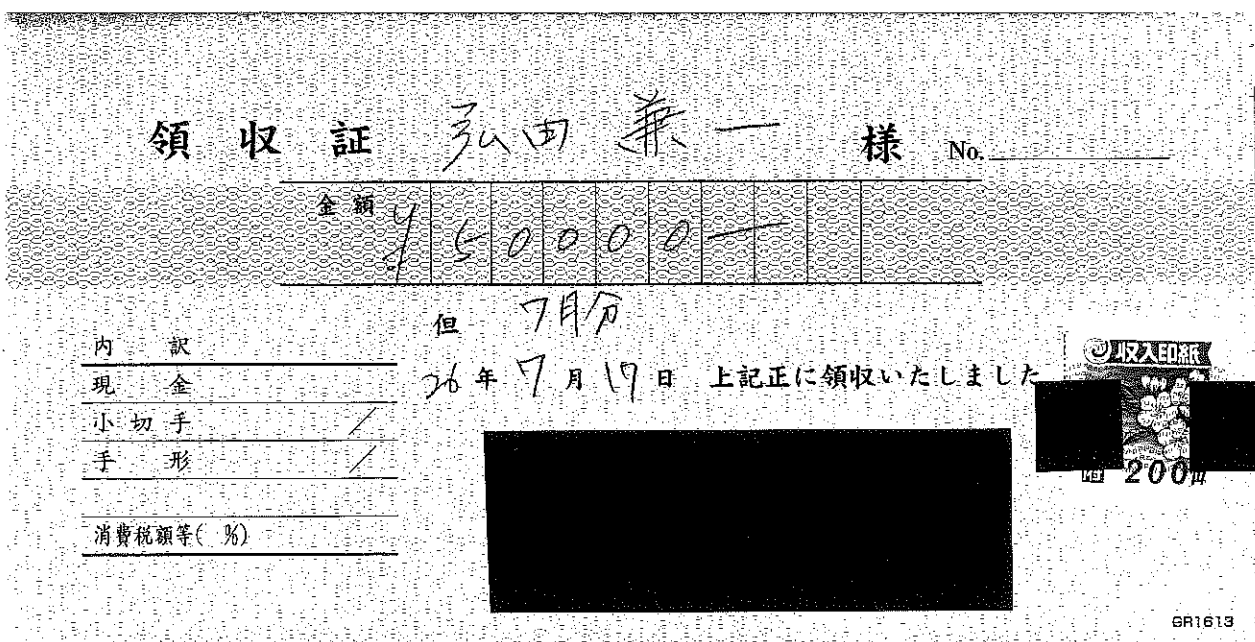 領収証 弘田 兼一 様 No.
金額 ¥50000一
但 7月分
26年7月17日 上記正に領収いたしました
内訳
現金
小切手 /
手形 /
消費税額等( %)
収入印紙
200円
GR1613